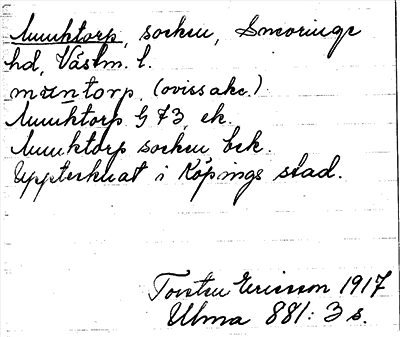 Munktorp, socken, Snevringe
hd, Västm. l.
måntorp, (oviss akc.)
Munktorp G 73, ek.
Munktorp socken bek.
Uppteckat i Köpings stad.
Torsten Ericsson 1917
Ulma 881: 3 s.